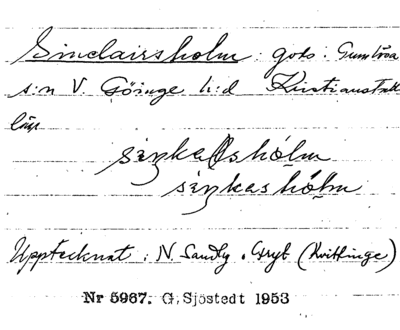 Sinclairsholm : gods : Gumlösa
s:n V. Göinge h:d Kristianstads
län
siŋkalshólm
siŋkashólm
Upptecknat : N. Sandby o. Gryt (Kvittinge)
Nr 5967. G. Sjöstedt 1953